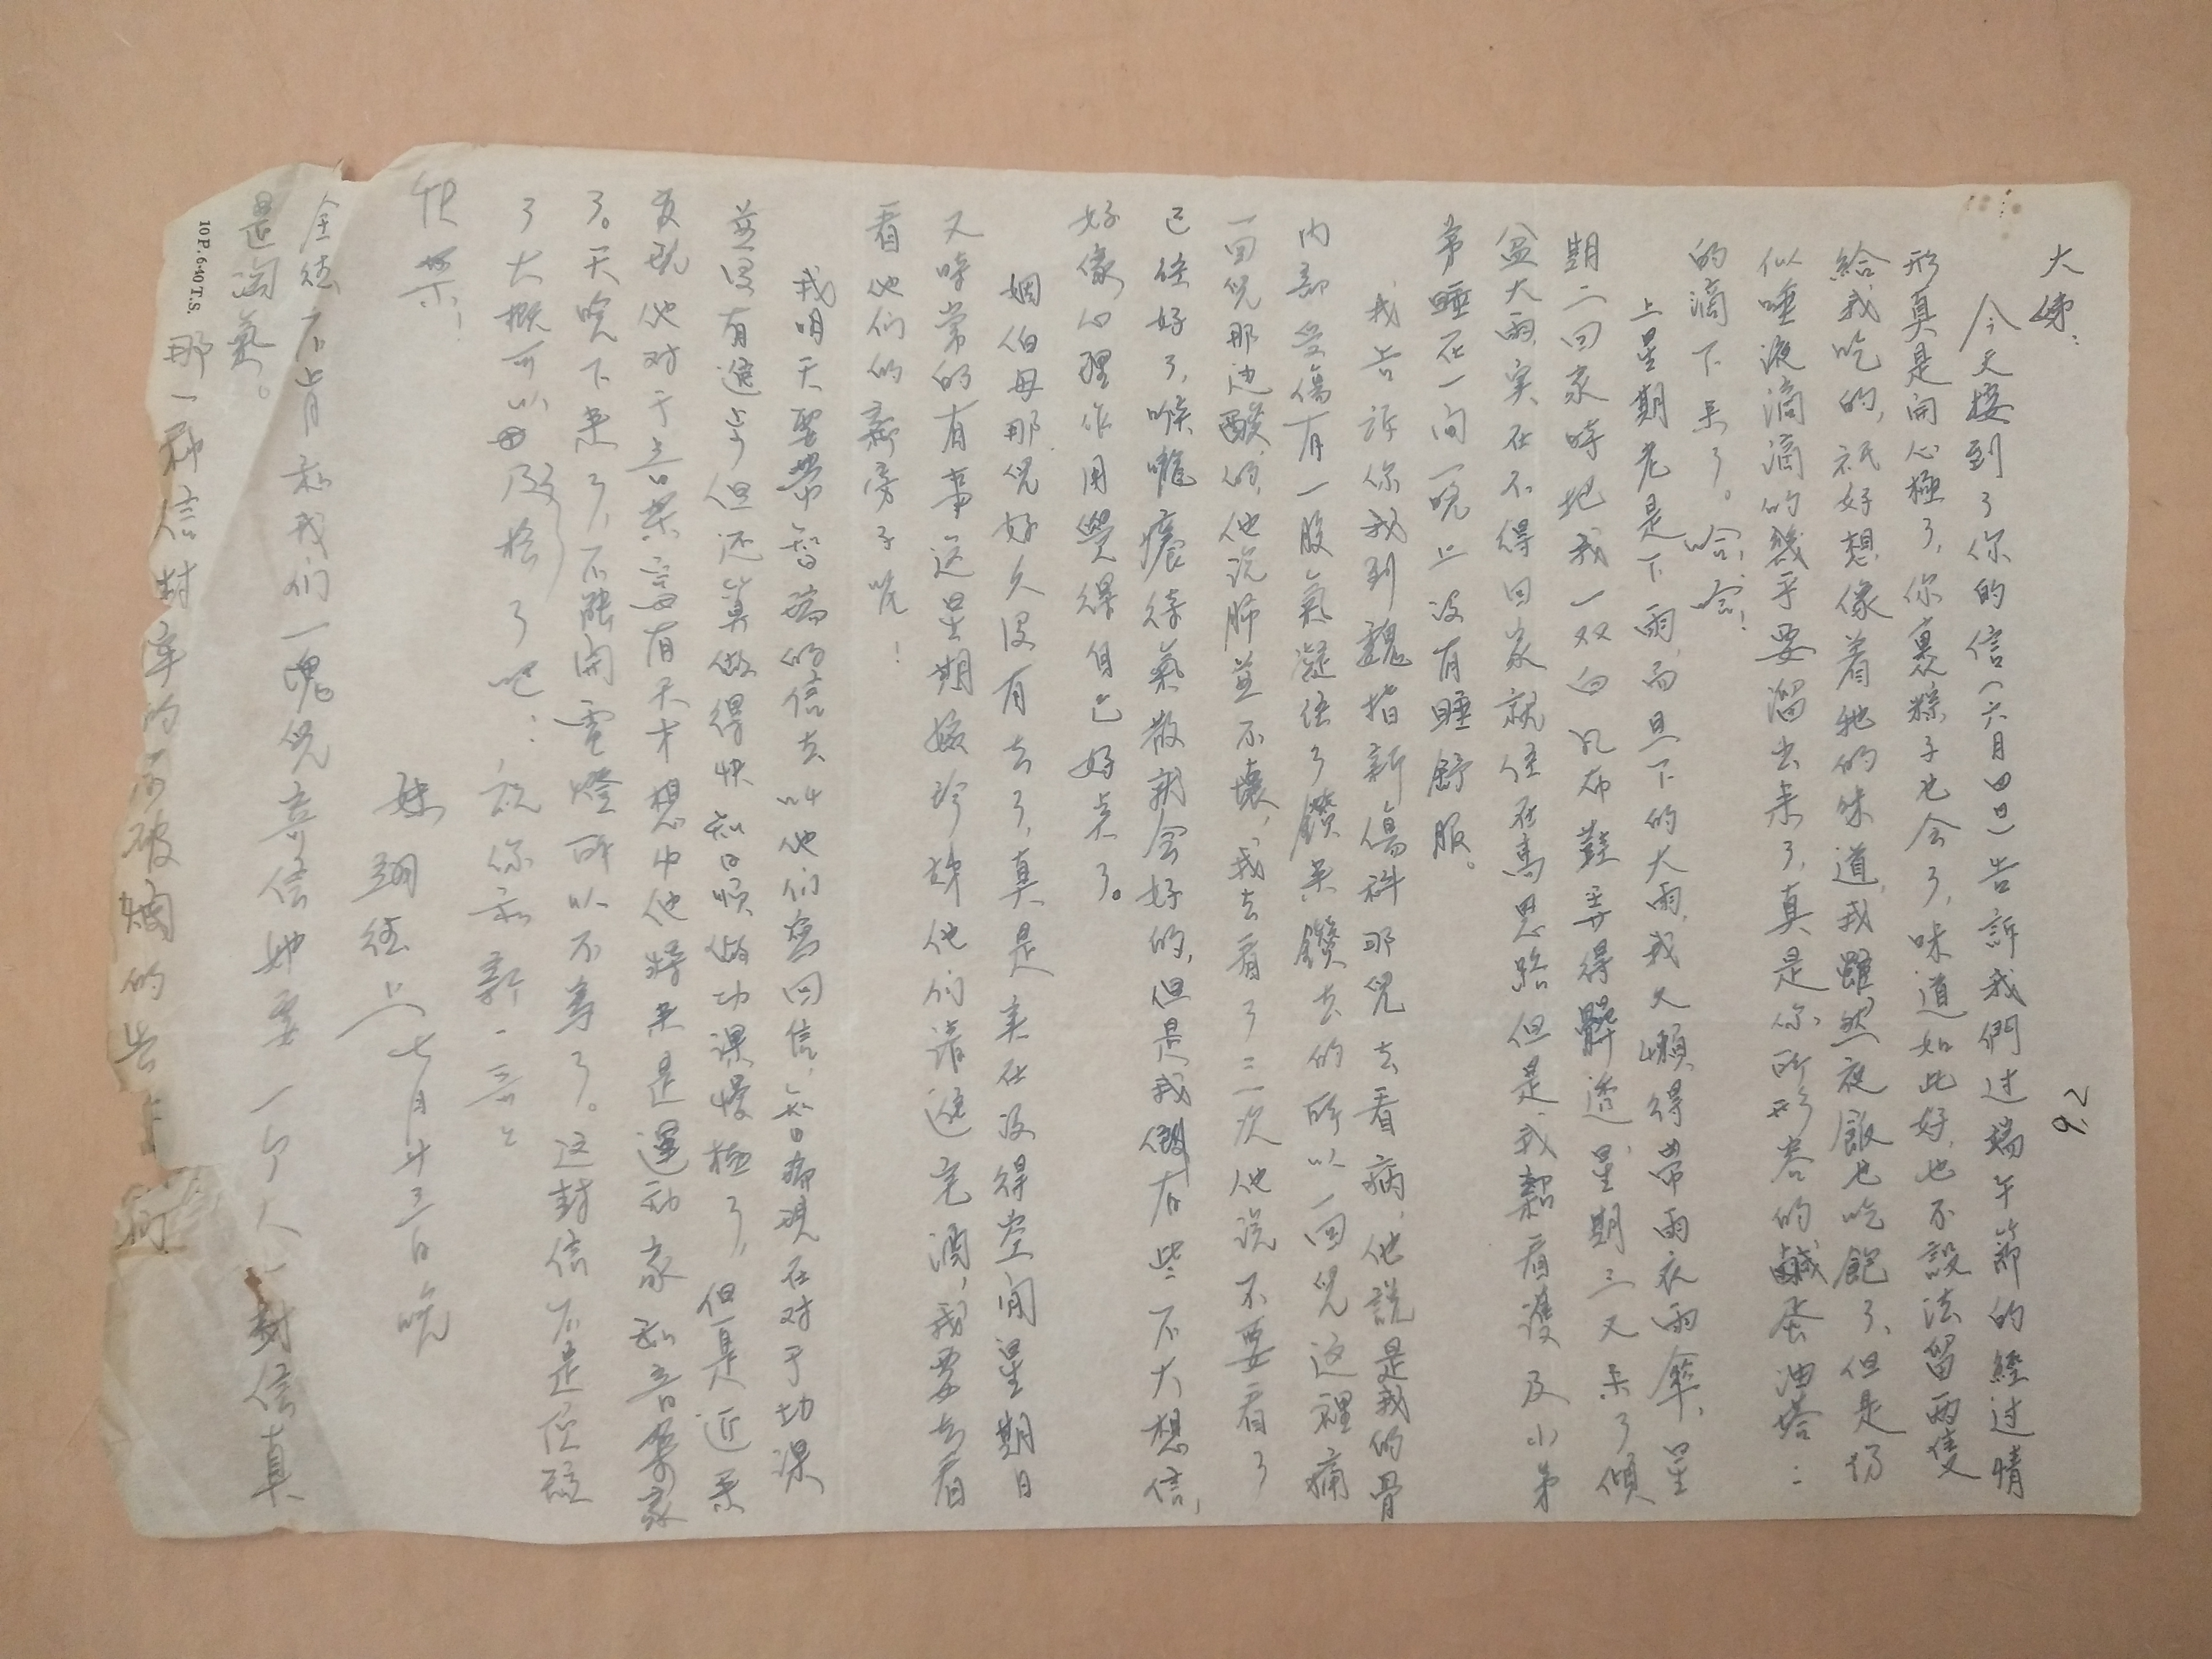 大姊：
今天接到了你的信（六月四日）告訴我們过端午節的經过情
形真是開心極了，你裹粽子也会了，味道如此好，也不設法留兩隻
給我吃的，祇好想像着牠的味道，我雖然夜飯也吃飽了，但是仍
似唾液滴滴的幾乎要溜出来了，真是你所形容的鹹蛋油塔：
的滴下来了。哈！哈！
上星期老是下雨，而且下的大雨，我又懶得帶雨衣雨傘，星
期二回家時把我一双白帆布鞋弄得髒透，星期三又来了傾
盆大雨，实在不得回家就住在馬思路但是，我要看護及小弟
弟睡在一间一晚上没有睡舒服。
我告訴你我到魏指新傷科那兒去看病，他說是我的骨
内部受傷有一股氣凝住了鑽来鑽去的所以一回兒这裡痛
一回兒那边酸的，他说肺並不壞，我去看了三次他说不要看了
已经好了，喉嚨癢待氣散就会好的，但是我倒有些不大想信，
好像心理作用覺得自己好点了。
姻伯母那兒好久没有去了，真是实在没得空闲星期日
又時常的有事这星期媛珍姊他们請这宅酒，我要去看
看他们的新房子呢！
我明天要帶智瑞的信去叫他们寫回信，智痛現在对于功课
並没有進步但还算做得快和日順做功课慢極了，但是近来
发現他对于音樂富有天才想中他將来是運动家和音樂家
了。天晚下来了，不能開電燈所以不寫了。这封信不是但該
了大概可以毋及格了吧：，祝你和新一哥：
快樂！
妹 翊经上 七月廿三日晚
全经不肯和我们一塊兒寄信她要一个人一封信真
是淘氣。
那一种信封宰的不破爛的
10 P. 6-40 T.S.
9.2